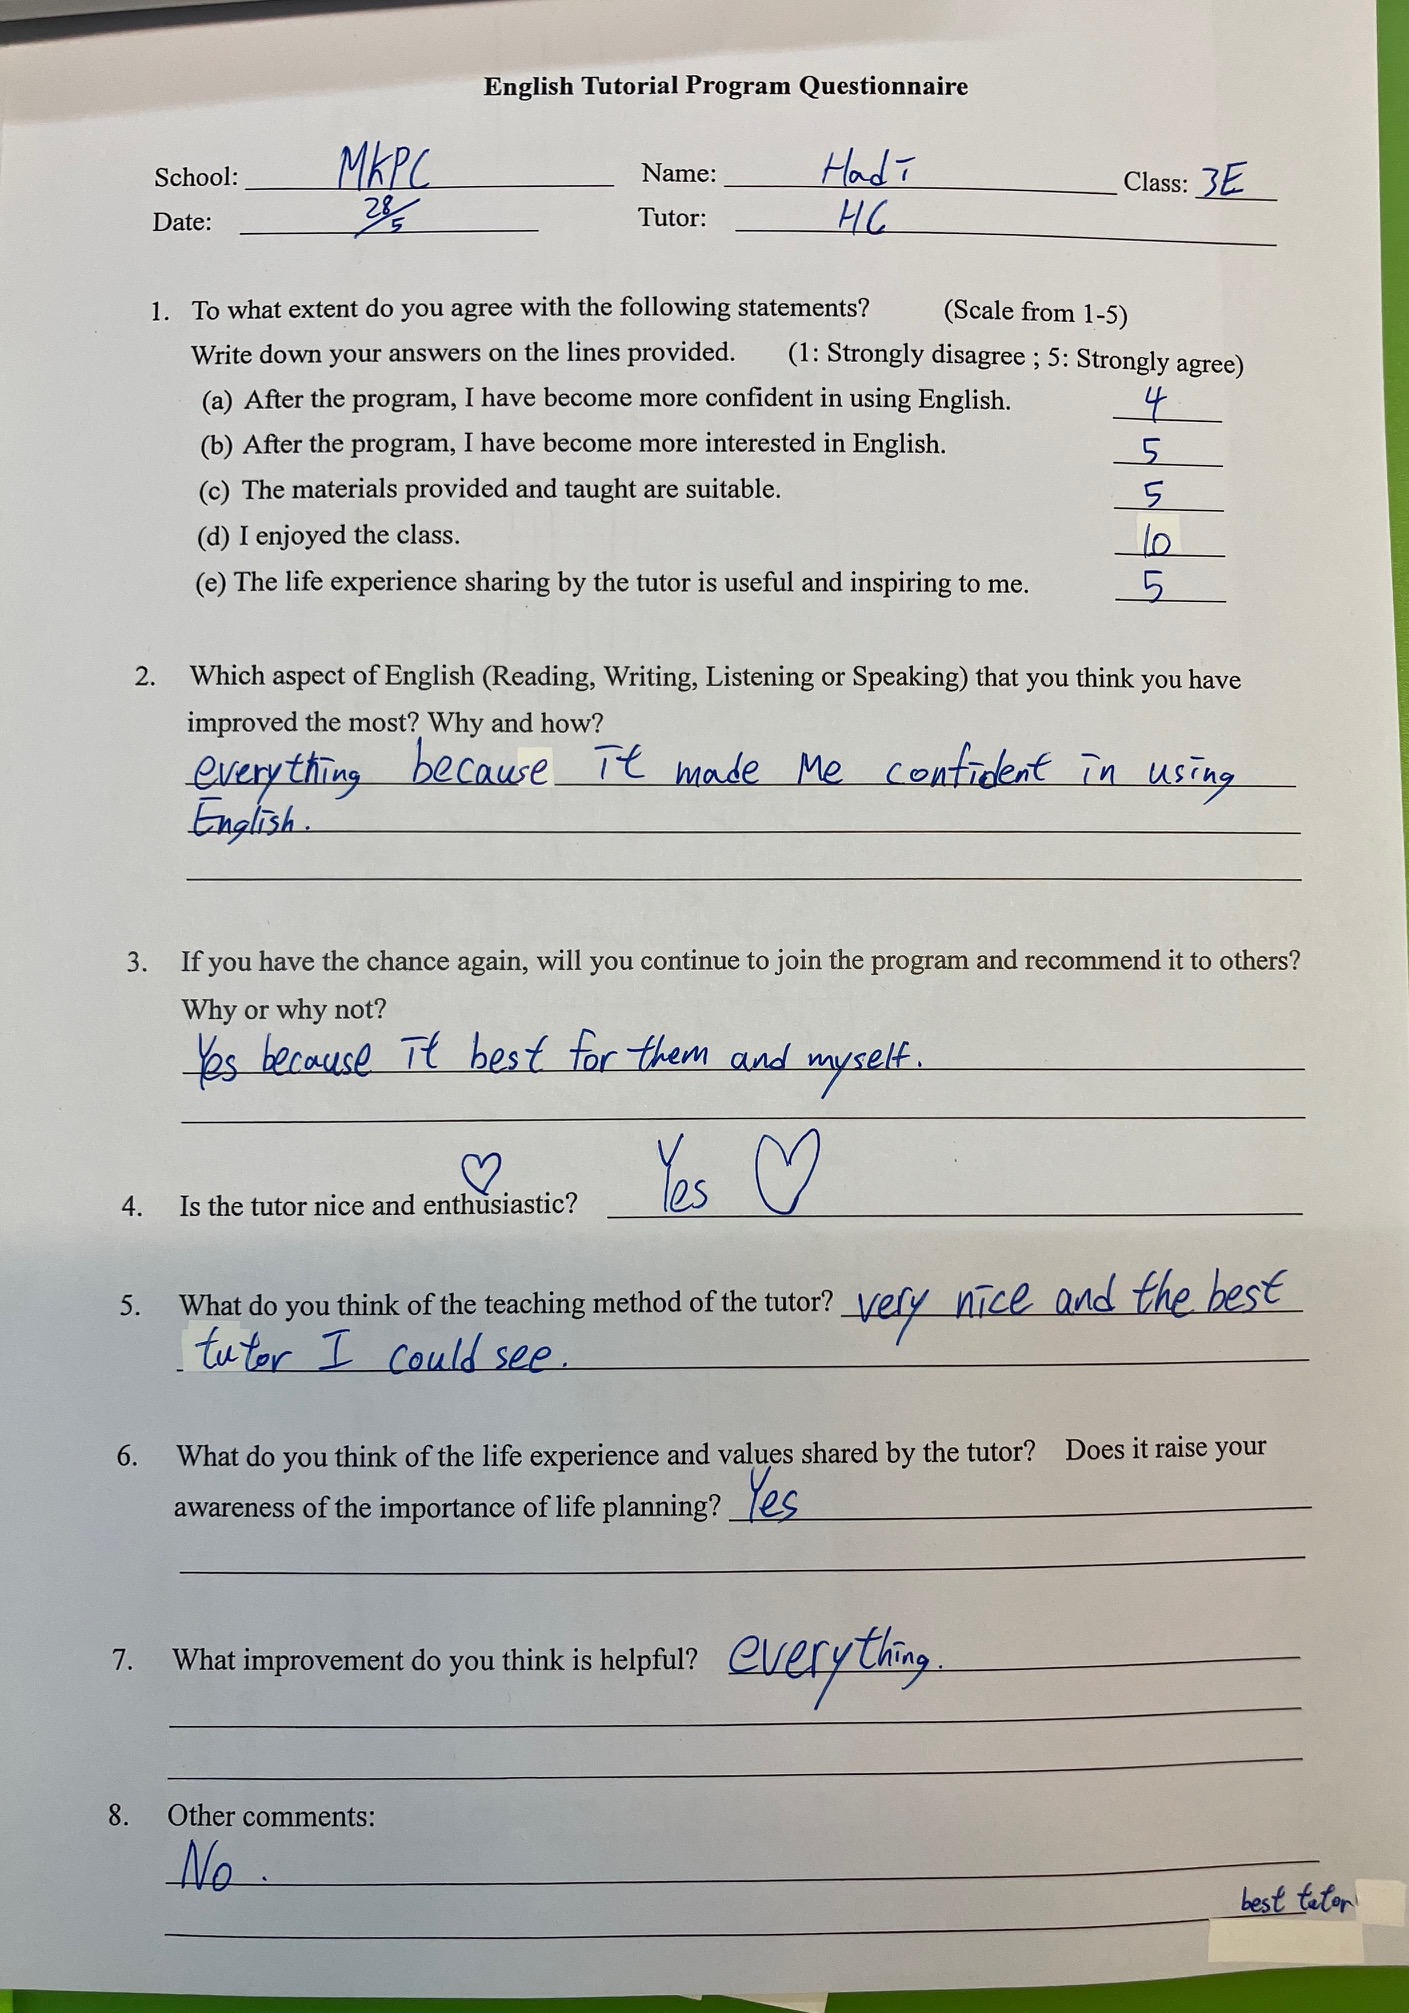 English Tutorial Program Questionnaire
School: MKPC Name: Hadi Class: 3E
Date: 28/5 Tutor: HC
1. To what extent do you agree with the following statements? (Scale from 1-5)
Write down your answers on the lines provided. (1: Strongly disagree ; 5: Strongly agree)
(a) After the program, I have become more confident in using English. 4
(b) After the program, I have become more interested in English. 5
(c) The materials provided and taught are suitable. 5
(d) I enjoyed the class. 10
(e) The life experience sharing by the tutor is useful and inspiring to me. 5
2. Which aspect of English (Reading, Writing, Listening or Speaking) that you think you have
improved the most? Why and how?
everything because it made me confident in using
English.
3. If you have the chance again, will you continue to join the program and recommend it to others?
Why or why not?
Yes because it best for them and myself.
4. Is the tutor nice and enthusiastic? Yes
5. What do you think of the teaching method of the tutor? very nice and the best
tutor I could see.
6. What do you think of the life experience and values shared by the tutor? Does it raise your
awareness of the importance of life planning? Yes
7. What improvement do you think is helpful? everything.
8. Other comments:
No.
best tutor